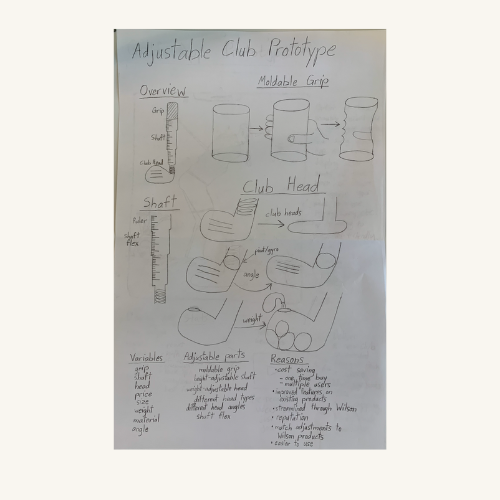 Adjustable Club Prototype
Overview
Grip
Shaft
Club Head
Moldable Grip
Shaft
Ruler
Shaft
flex
Club Head
club heads
pivot/gyro
angle
weight
Variables
grip
shaft
head
price
size
weight
material
angle
Adjustable parts
moldable grip
height-adjustable shaft
weight-adjustable head
different head types
different head angles
shaft flex
Reasons
• cost saving
- one time buy
- multiple users
• improved features on
existing products
• streamlined through Wilson
• reputation
• match adjustments to
Wilson products
• easier to use